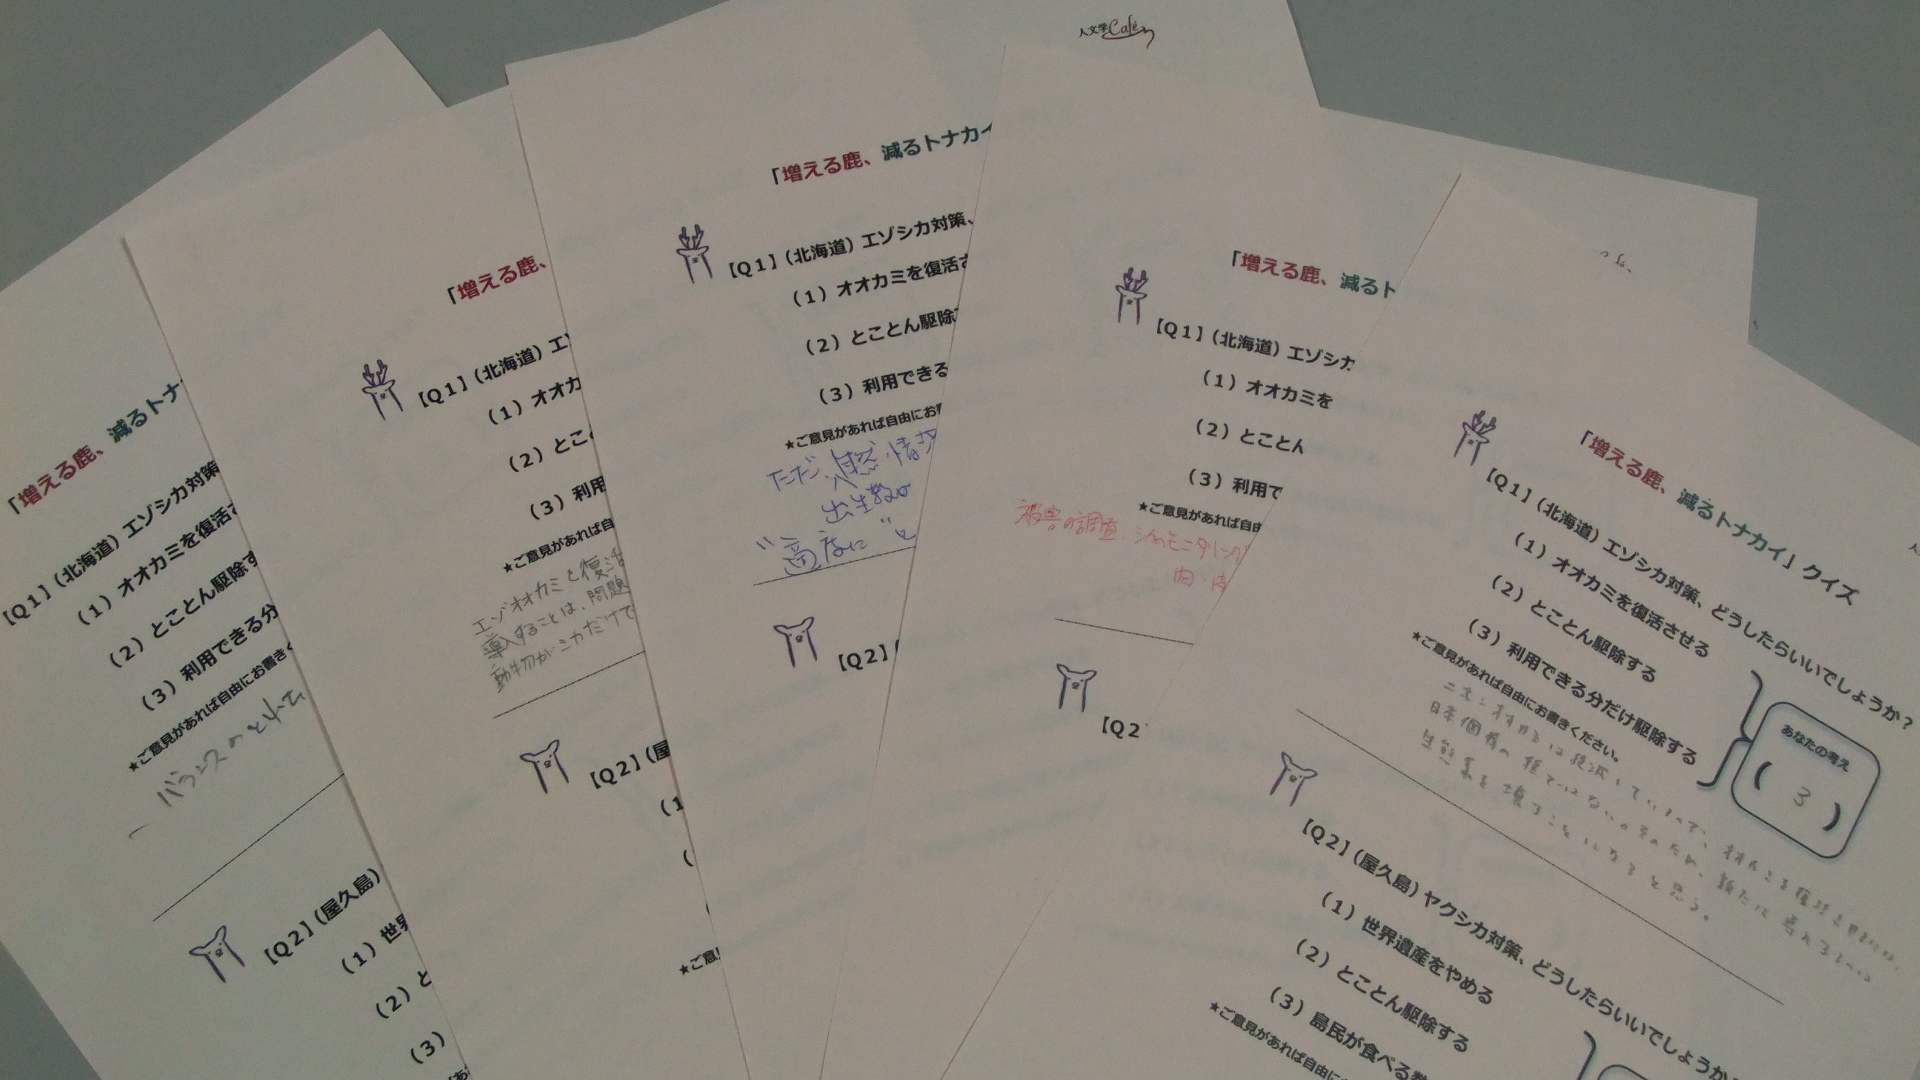 「増える鹿、減るトナカ
【Q1】（北海道）エゾシカ対策
（1）オオカミを復活
（2）とことん駆除す
（3）利用できる分
★ご意見があれば自由にお書き
バランスのとれた
【Q2】（屋久島）
（1）世界
（2）と
（3）
「増える鹿、
【Q1】（北海道）エ
（1）オオカ
（2）とこ
（3）利用
★ご意見があれば自
エゾオオカミを復活
導入することは、問題
動物がシカだけで
【Q2】（屋
（1
（
人文学Café
「増える鹿、減るトナカイ
【Q1】（北海道）エゾシカ対策、
（1）オオカミを復活さ
（2）とことん駆除
（3）利用できる
★ご意見があれば自由にお
ただ、自然
出生数の
"高度に"と
【Q2】
★ご意
「増える鹿、減るト
【Q1】（北海道）エゾシカ
（1）オオカミを
（2）とことん
（3）利用で
★ご意見があれば自由
被害の調査、シカのモニタリング
【Q2
「増える鹿、減るトナカイ」クイズ
【Q1】（北海道）エゾシカ対策、どうしたらいいでしょうか？
（1）オオカミを復活させる
（2）とことん駆除する
（3）利用できる分だけ駆除する
あなたの考え
（ 3 ）
★ご意見があれば自由にお書きください。
日本固有の種ではない。そのため、新たに
生態系を壊すことになると思う。
【Q2】（屋久島）ヤクシカ対策、どうしたらいいでしょうか
（1）世界遺産をやめる
（2）とことん駆除する
（3）島民が食べる
★ご意見があれば自由